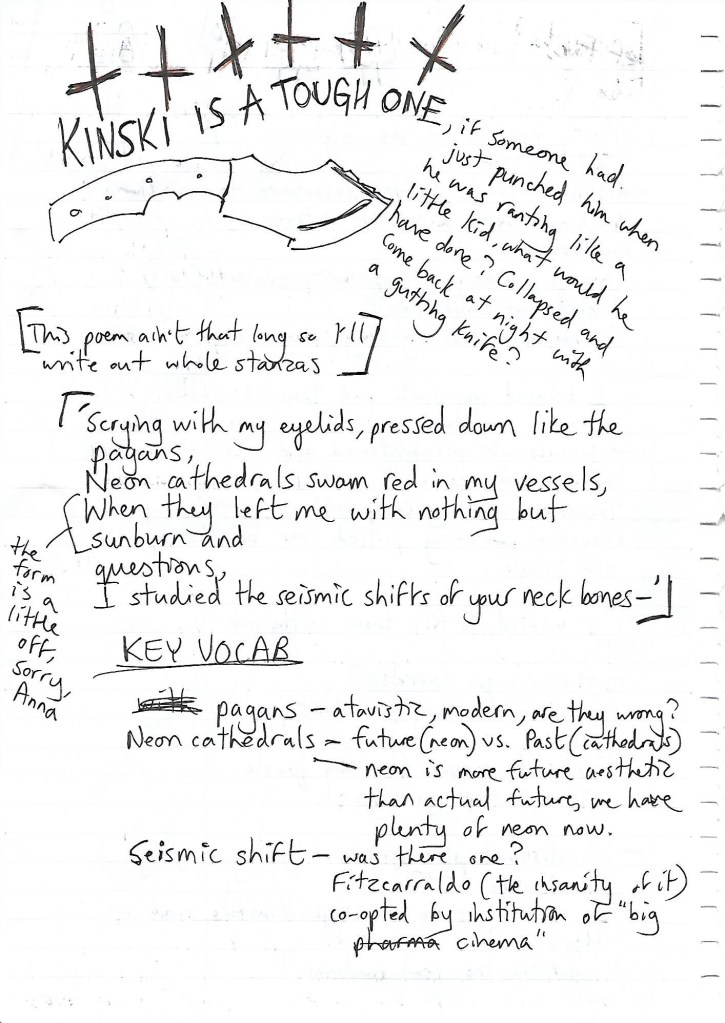 KINSKI IS A TOUGH ONE, if someone had
just punched him when
he was ranting like a
little kid, what would he
have done? Collapsed and
come back at night with
a gutting knife?
[This poem ain't that long so I'll
write out whole stanzas]
"Scrying with my eyelids, pressed down like the
pagans,
Neon cathedrals swam red in my vessels,
When they left me with nothing but
sunburn and
questions,
I studied the seismic shifts of your neck bones-"
the
form
is a
little
off,
sorry,
Anna
KEY VOCAB
pagans - atavistic, modern, are they wrong?
Neon cathedrals - future (neon) vs. Past (cathedrals)
- neon is more future aesthetic
than actual future, we have
plenty of neon now.
Seismic shift - was there one?
Fitzcarraldo (the insanity of it)
co-opted by institution of "big
pharma cinema"